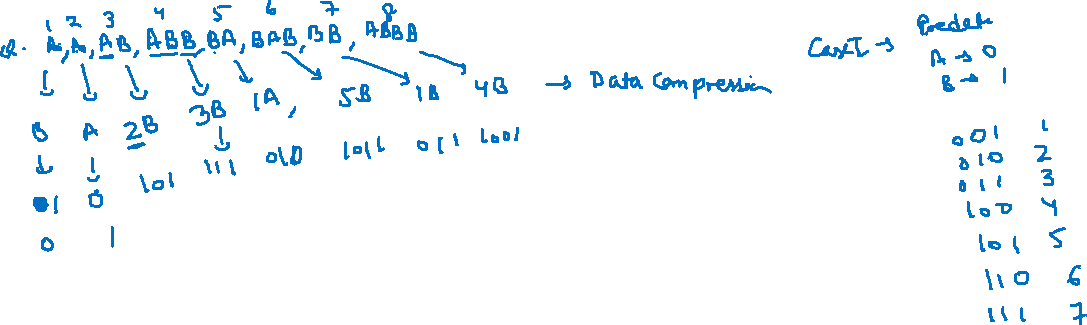 1 2 3 4 5 6 7 8
Q. A, A, AB, ABB, BA, BAB, BB, ABBB
B A 2B 3B 1A, 5B 1B 4B → Data Compression
1 0 101 111 010 1011 011 1001
0 1
Case I →
A → 0
B → 1
001 1
010 2
011 3
100 4
101 5
110 6
111 7